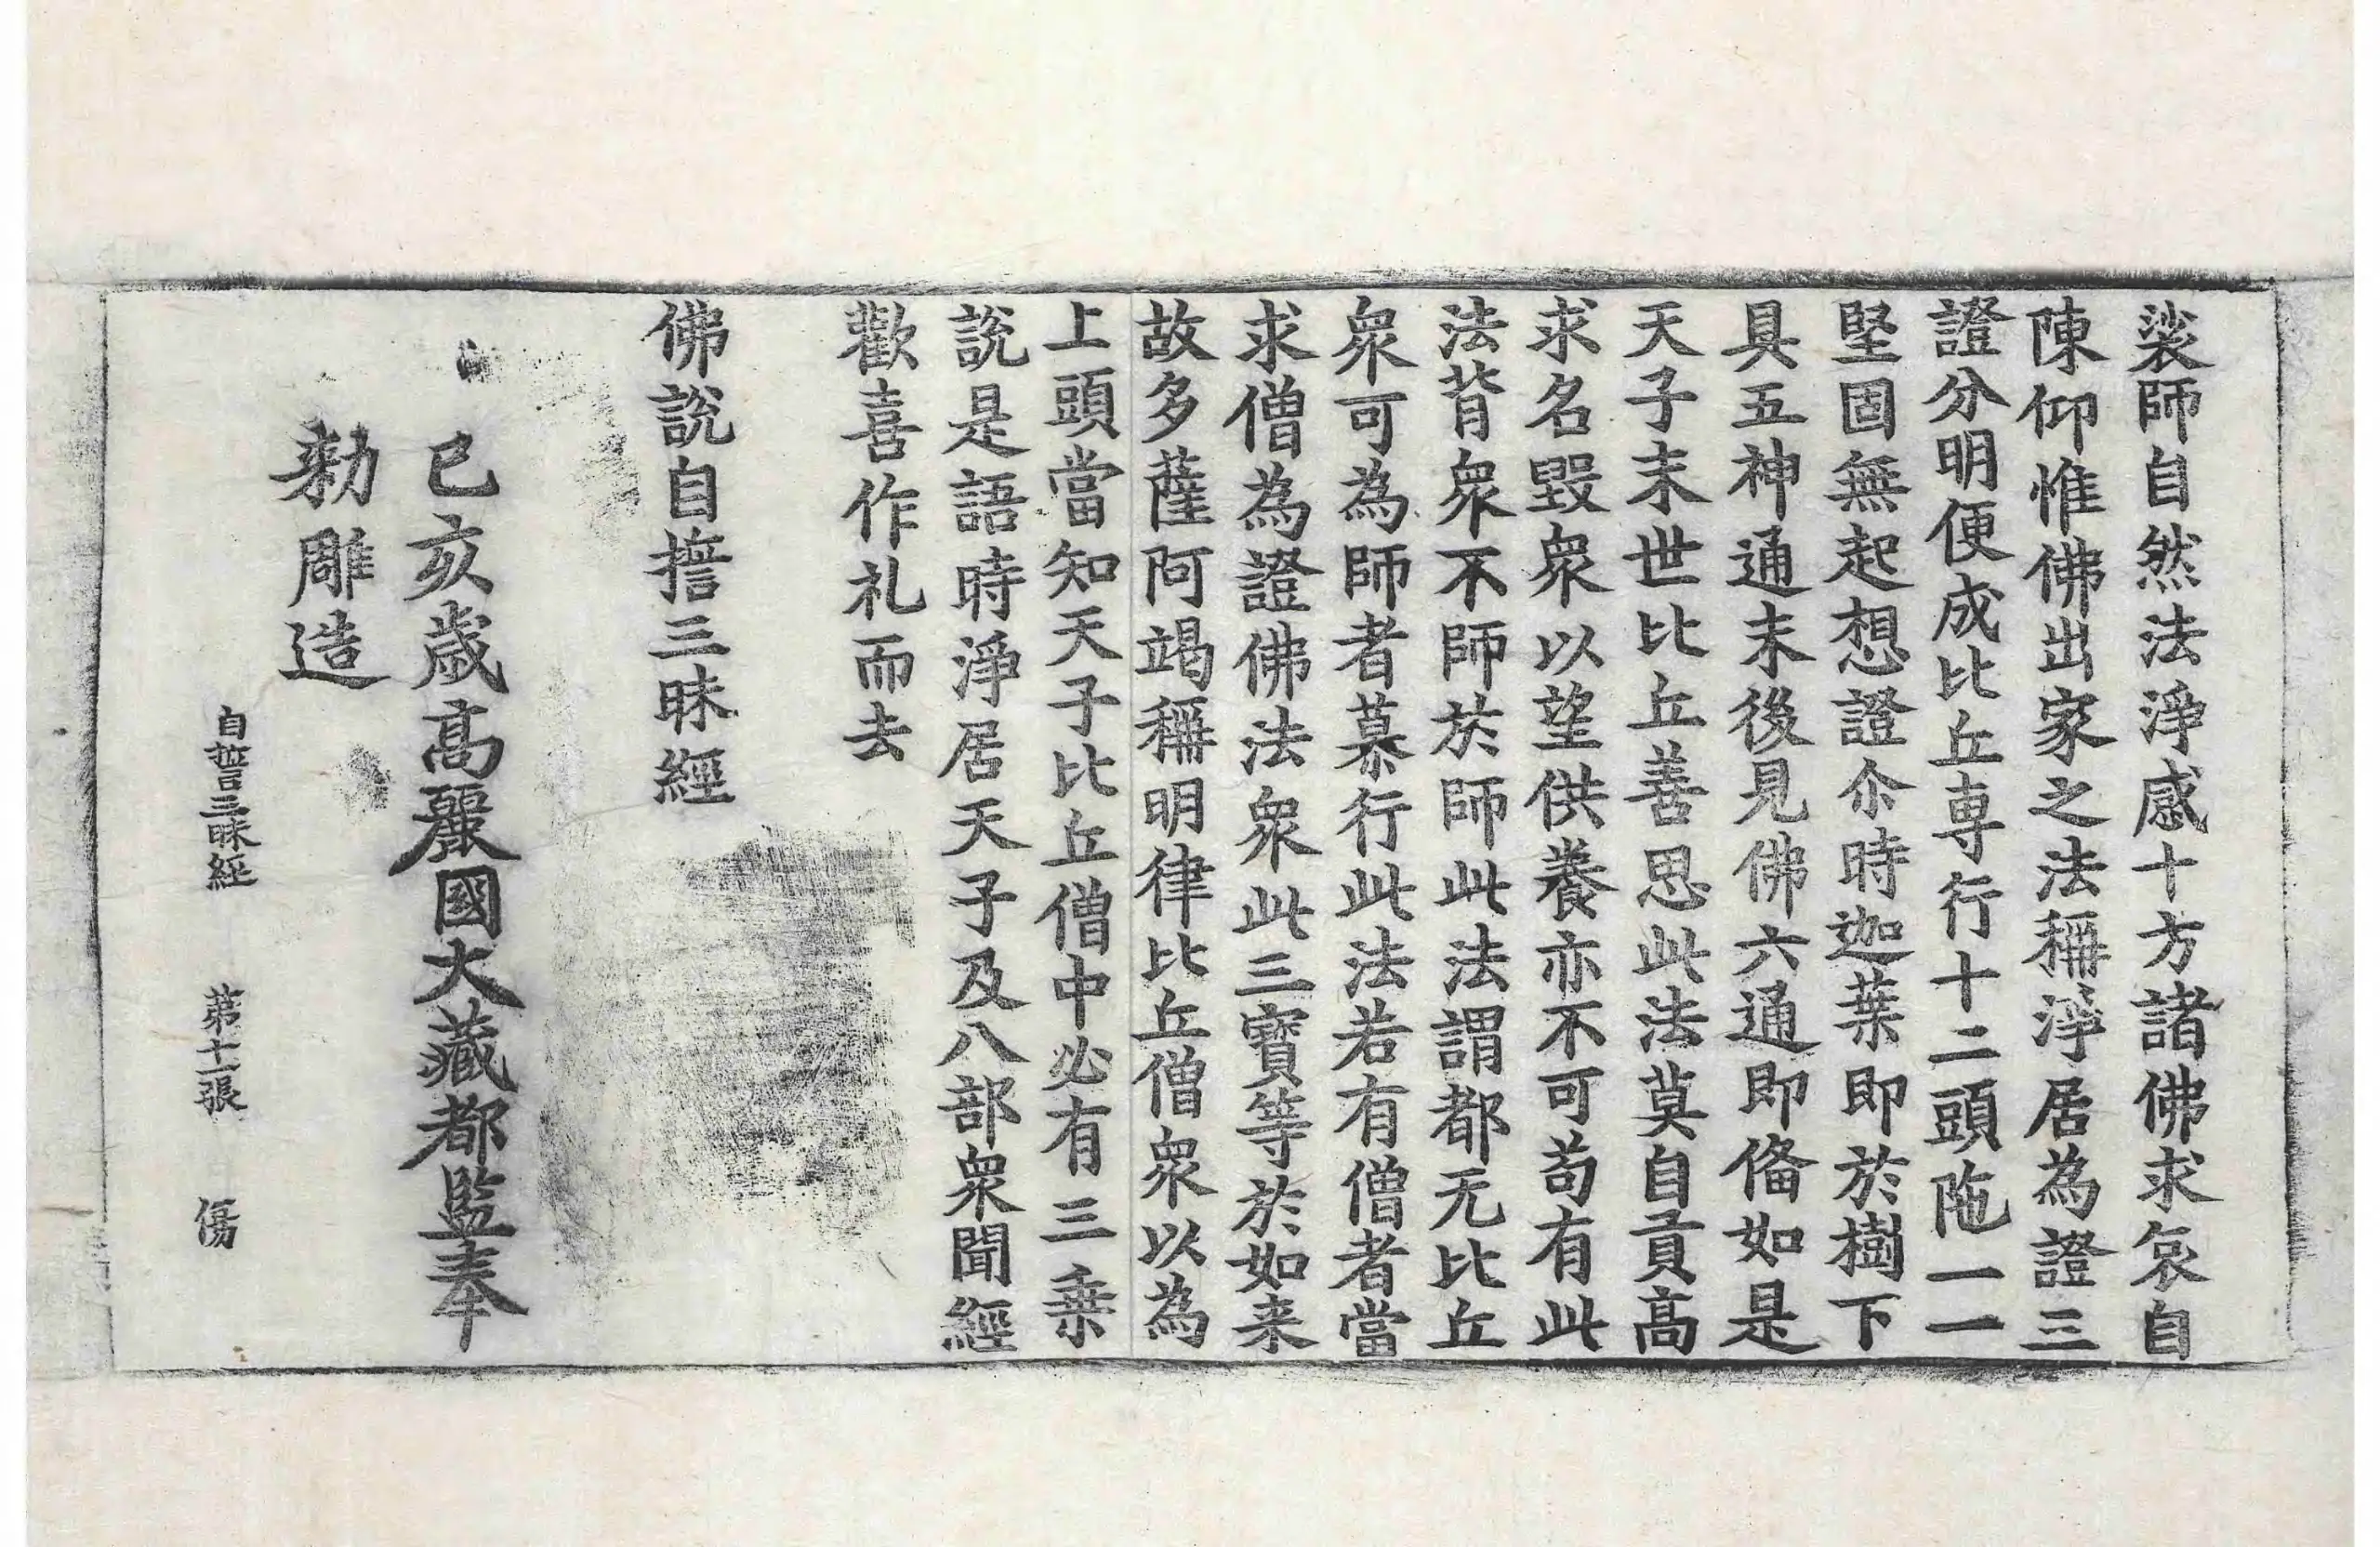 裟師自然法淨感十方諸佛求哀自
陳仰惟佛出家之法稱淨居為證三
證分明便成比丘専行十二頭陁一一
堅固無起想證尒時迦葉即於樹下
具五神通末後見佛六通即俻如是
天子末世比丘善思此法莫自貢高
求名毀衆以望供養亦不可苟有此
法背衆不師於師此法謂都无比丘
衆可為師者慕行此法若有僧者當
求僧為證佛法衆此三寶等於如来
故多薩阿竭稱明律比丘僧衆以為
上頭當知天子比丘僧中必有三乗
說是語時淨居天子及八部衆聞經
歡喜作礼而去
佛說自擔三昧經
己亥歲髙麗國大藏都監奉
勑雕造
自誓三昧經 第十一張 傷